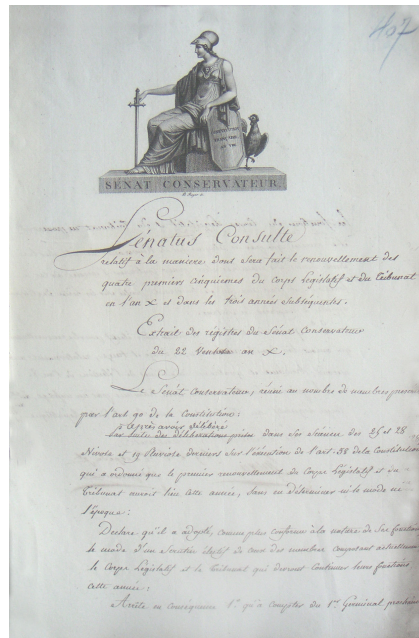 407
CONSTITUTION
SÉNAT CONSERVATEUR.
Sénatus Consulte
relatif à la manière dont sera fait le renouvellement des
quatre premiers cinquièmes du Corps Législatif et du Tribunat
en l'an X et dans les trois années subséquentes.
Extrait des régistres du Sénat Conservateur
du 22 Ventose an X.
Le Sénat Conservateur, réuni au nombre de membres prescrit
par l'art 90 de la Constitution;
Après avoir délibéré
délibérations prises dans ses séances des 25 et 28
Nivose et 19 Pluviose derniers sur l'exécution de l'art. 38 de la Constitution
qui a ordonné que le premier renouvellement du Corps Législatif et du
Tribunat auroit lieu cette année, sans en déterminer ni le mode ni
l'époque;
Déclare qu'il a adopté, comme plus conforme à la nature de ses fonctions
le mode d'un Scrutin électif de ceux des membres composant actuellement
le Corps Législatif et le Tribunat qui devront continuer leurs fonctions
cette année;
Arrête en conséquence 1° qu'à compter du 1er Germinal prochain